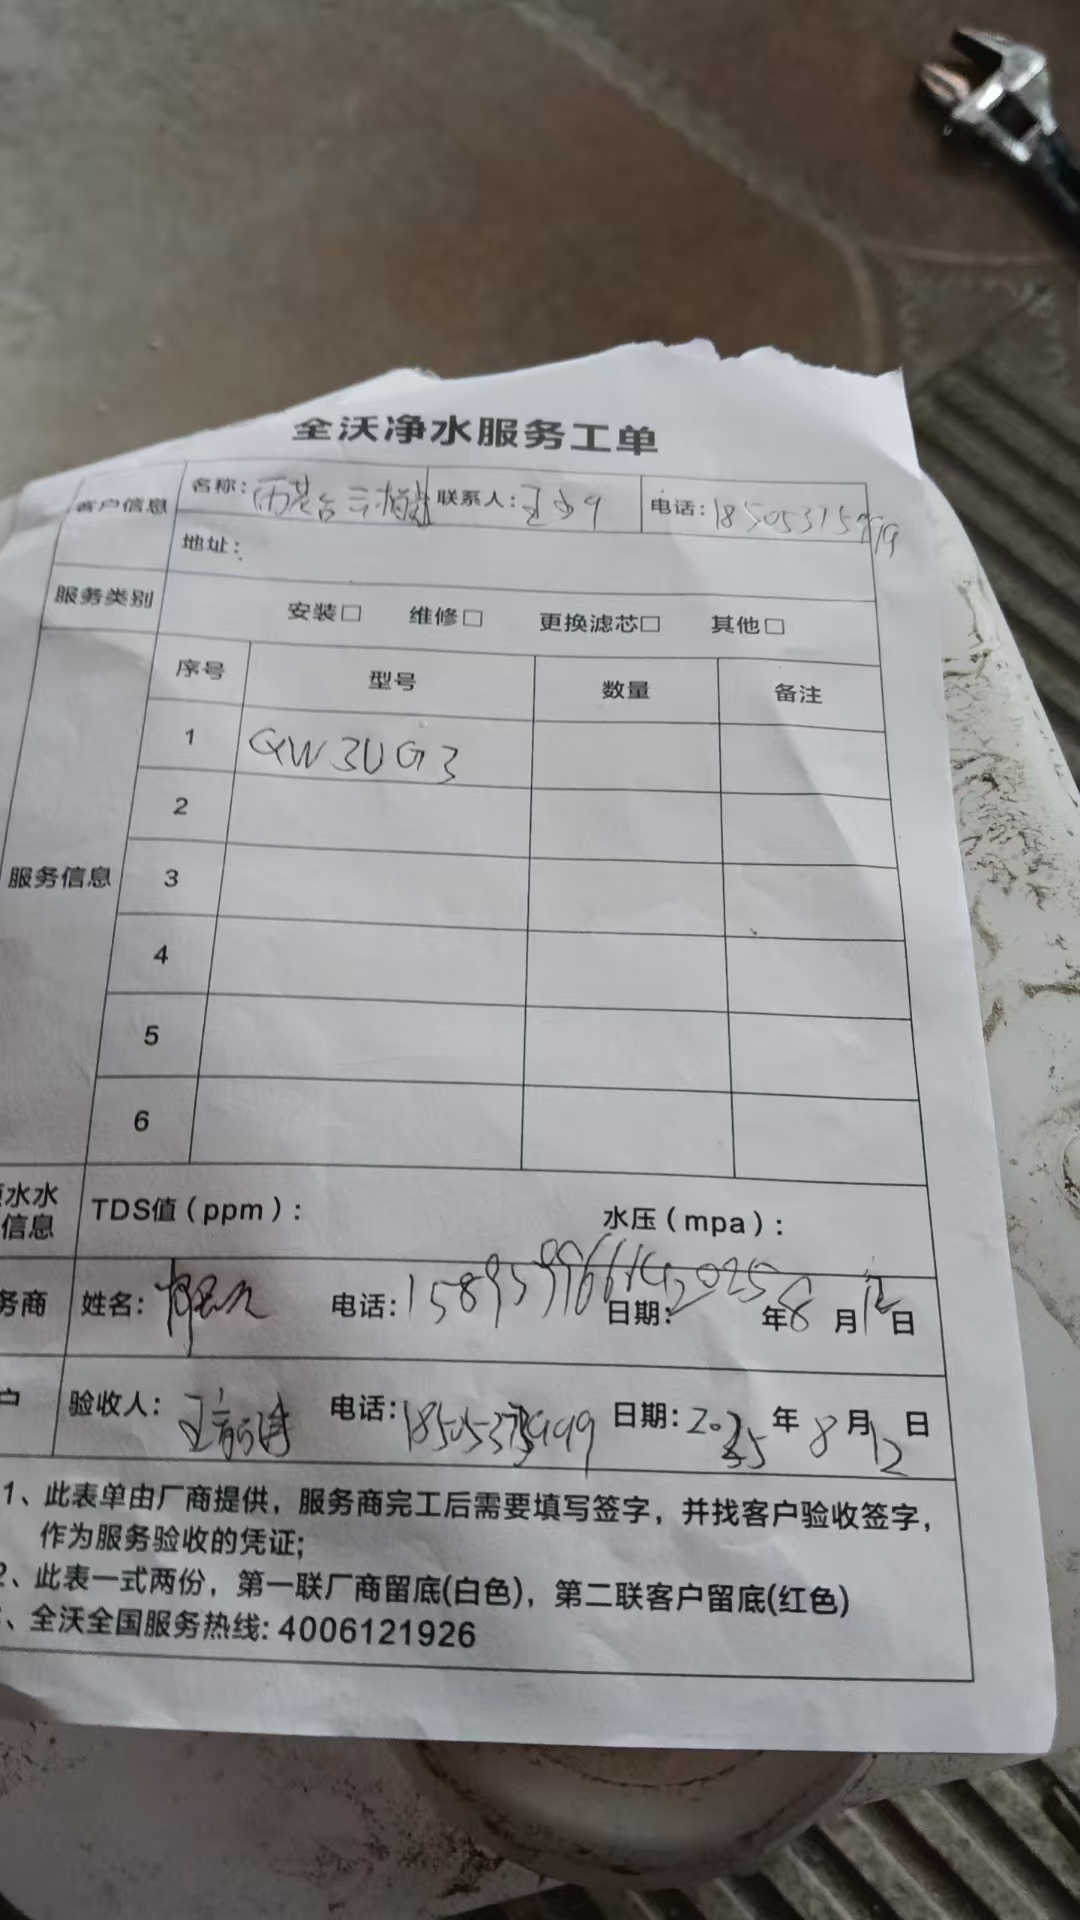 全沃净水服务工单
客户信息 名称: 联系人: 王 电话: 18505375999
地址:
服务类别 安装□ 维修□ 更换滤芯□ 其他□
序号 型号 数量 备注
1 QW3UG3
2
服务信息 3
4
5
6
水水
信息 TDS值（ppm）: 水压（mpa）:
务商 姓名: 电话: 日期: 2025年8月12日
户 验收人: 王 电话: 18505375999 日期: 2025年8月12日
1、此表单由厂商提供，服务商完工后需要填写签字，并找客户验收签字，
作为服务验收的凭证;
2、此表一式两份，第一联厂商留底(白色)，第二联客户留底(红色)
、全沃全国服务热线: 4006121926